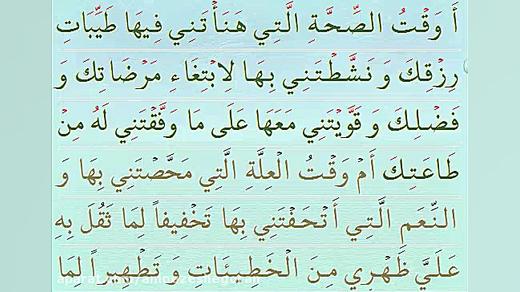 أَ وَقْتُ الصِّحَّةِ الَّتِي هَنَأْتَنِي فِيهَا طَيِّبَاتِ
رِزْقِكَ وَ نَشَّطْتَنِي بِهَا لِابْتِغَاءِ مَرْضَاتِكَ وَ
فَضْلِكَ وَ قَوَّيْتَنِي مَعَهَا عَلَى مَا وَفَّقْتَنِي لَهُ مِنْ
طَاعَتِكَ أَمْ وَقْتُ الْعِلَّةِ الَّتِي مَحَّصْتَنِي بِهَا وَ
النِّعَمِ الَّتِي أَتْحَفْتَنِي بِهَا تَخْفِيفاً لِمَا ثَقُلَ بِهِ
عَلَيَّ ظَهْرِي مِنَ الْخَطِيئَاتِ وَ تَطْهِيراً لِمَا